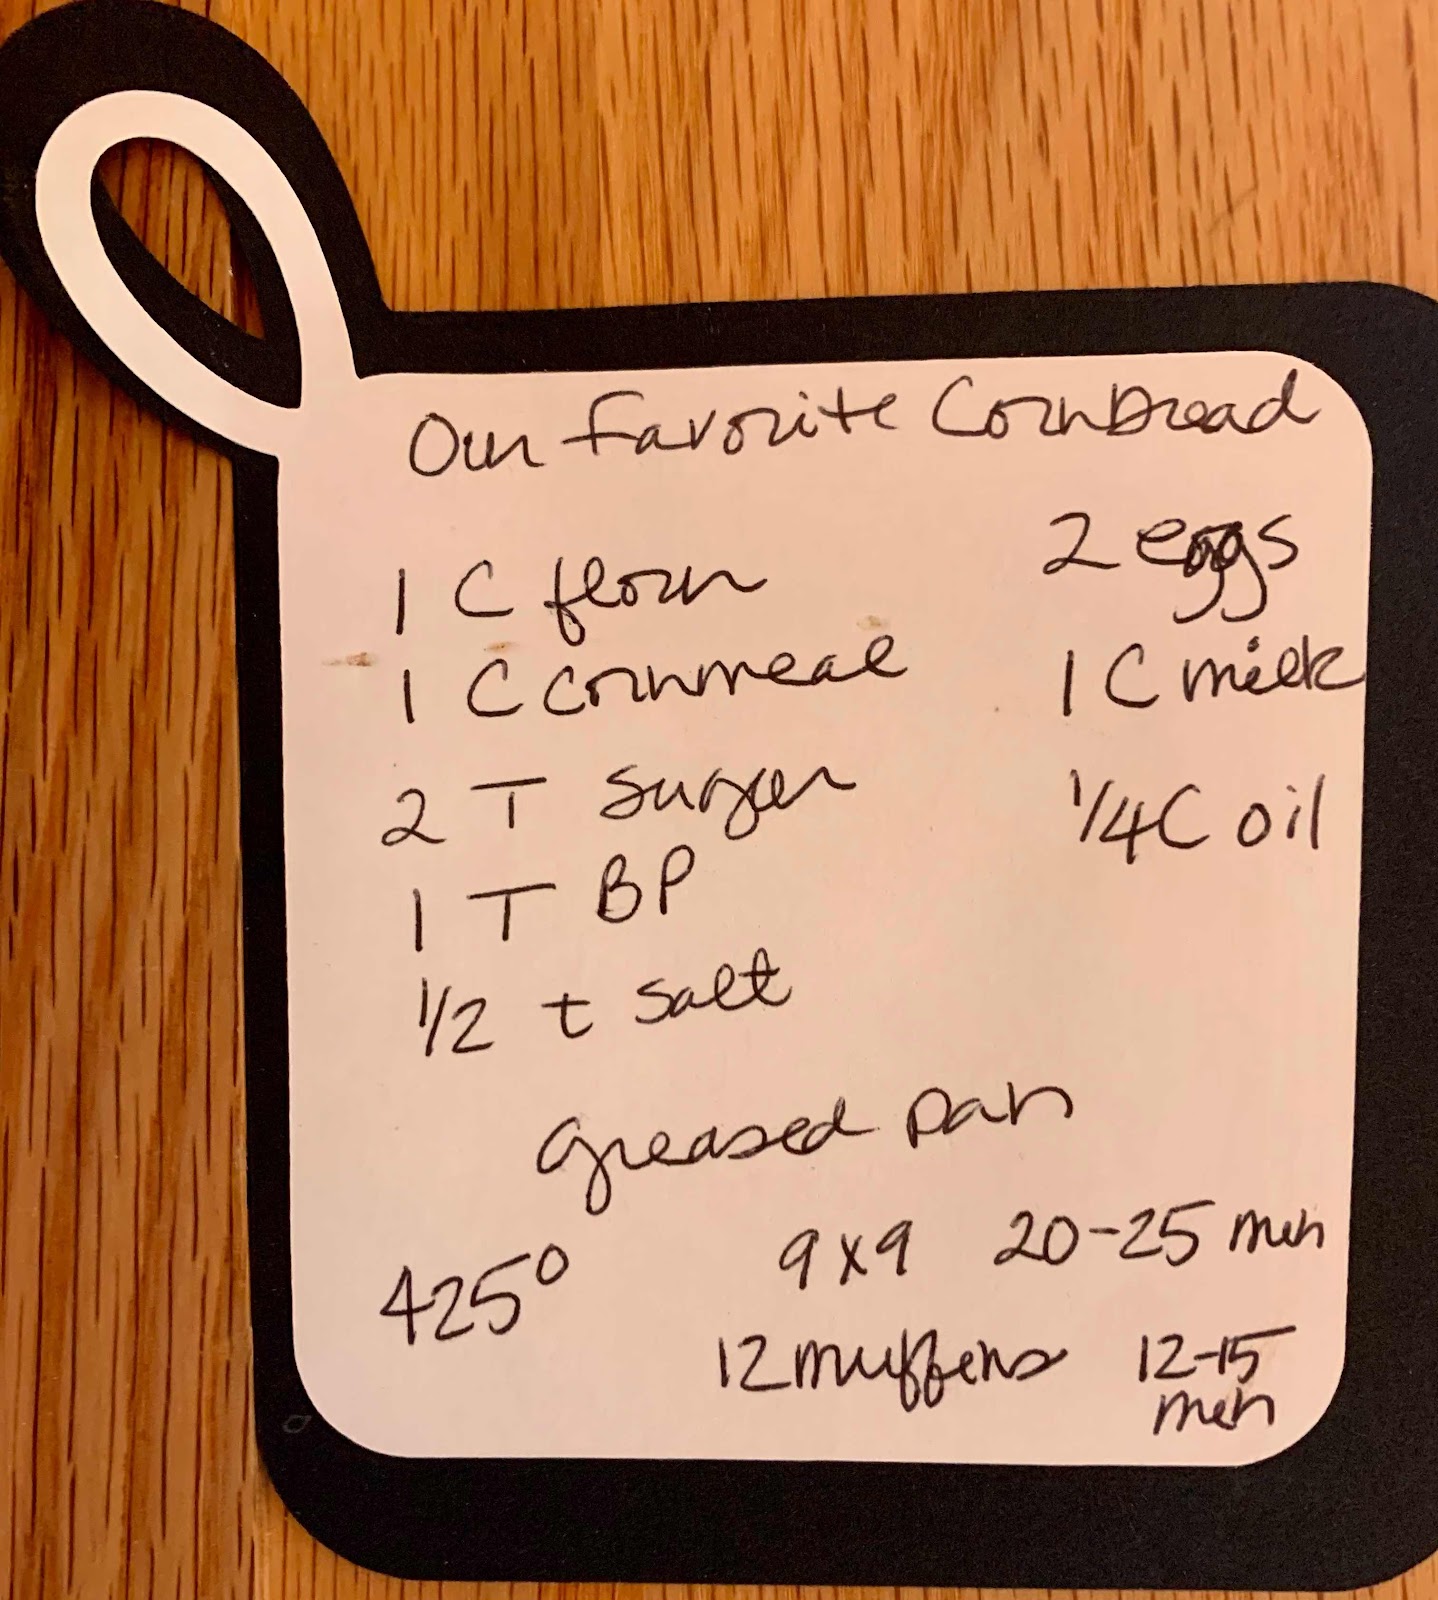 Our Favorite Cornbread
1 C flour
1 C cornmeal
2 T sugar
1 T BP
1/2 t salt
2 eggs
1 C milk
1/4 C oil
greased pan
425°
9x9 20-25 min
12 muffins 12-15
min